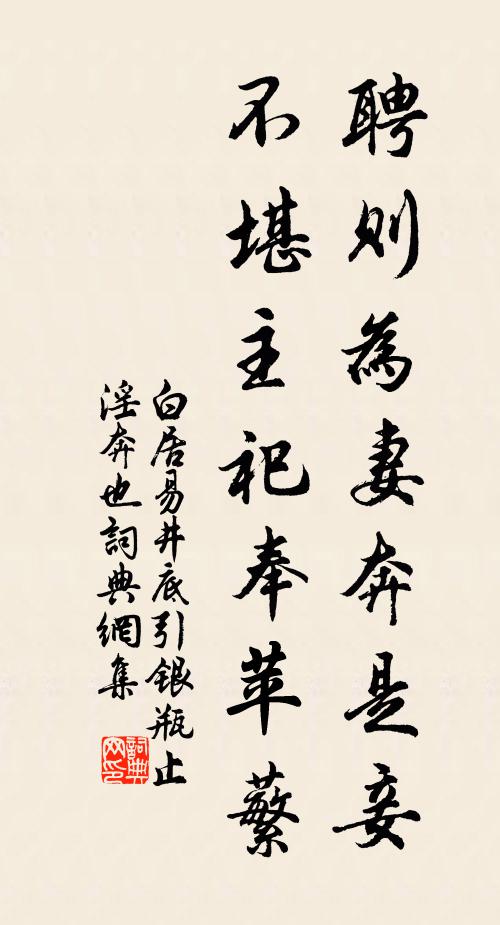 聘則為妻奔是妾
不堪主祀奉苹蘩
白居易井底引銀瓶止
淫奔也詞典網集
詞典
网印